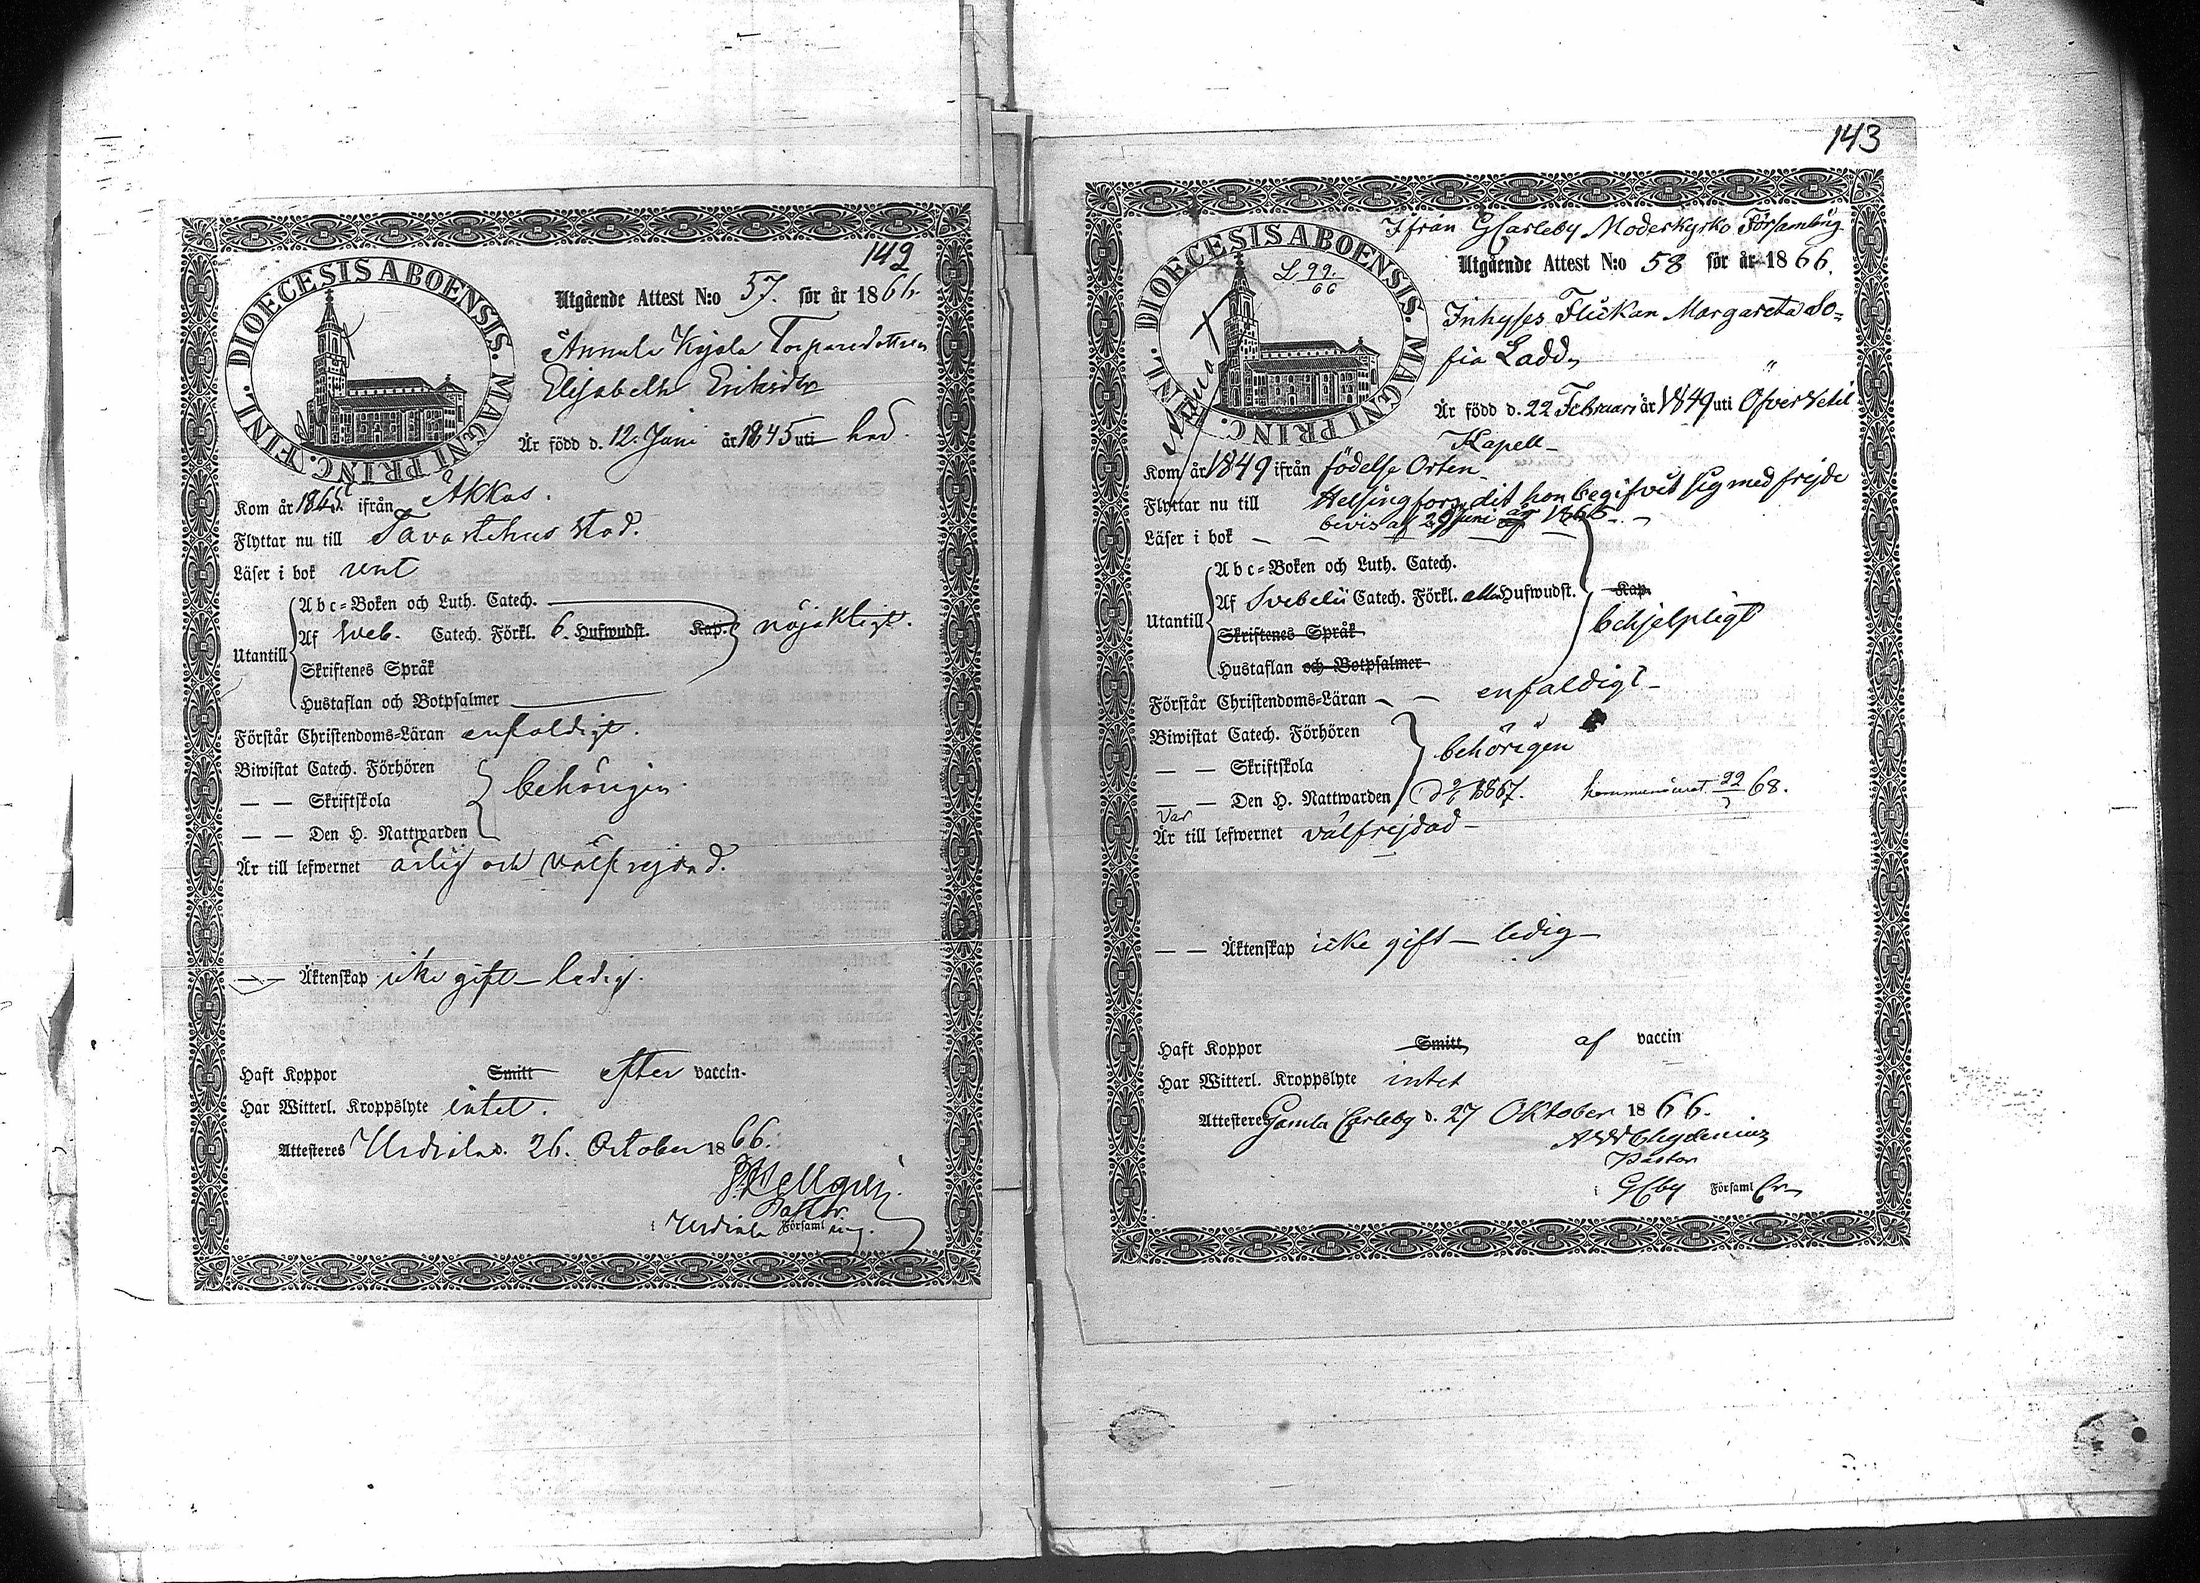 142
DIOECESIS ABOENSIS. MAGNI PRINC. FINL.
Utgående Attest N:o 57. för år 1866.
Annula Kyjala Torparedottren
Elisabeth Eriksdr
Är född d. 12. Juni år 1845 uti här.
Kom år 1865 ifrån Akkas.
Flyttar nu till Tavastehus stad.
Läser i bok rent
Utantill
Abc-Boken och Luth. Catech.
Af Sveb. Catech. Förkl. 6. Hufwudst. Kap. nöjaktigt.
Skriftenes Språk
Hustaflan och Botpsalmer
Förstår Christendoms-Läran enfaldigt.
Biwistat Catech. Förhören
— — Skriftskola behörigen.
— — Den H. Nattwarden
Är till lefwernet ärlig och välfrejdad.
— — Äktenskap icke gift – ledig.
Haft Koppor Smitt efter vaccin.
Har Witterl. Kroppslyte intet.
Attesteres Urdiala d. 26. October 1866.
Hellgren.
Pastor
i Urdiala Församling.
143
Ifrån GCarleby Moderkyrko Församling
DIOECESIS ABOENSIS. MAGNI PRINC. FINL.
L 99./66
Utgående Attest N:o 58 för år 1866.
Inhyses Flickan Margareta So=
fia Ladd,
Är född d. 22 Februari år 1849 uti Öfvervetil
Kapell –
Kom år 1849 ifrån födelse Orten
Flyttar nu till Helsingfors, dit hon begifvit sig med frejde
bevis af 29 Juni år 1866. –
Läser i bok – – – – –
Utantill
Abc-Boken och Luth. Catech.
Af Svebelii Catech. Förkl. alla Hufwudst. Kap.
behjelpligt
Skriftenes Språk
Hustaflan och Botpsalmer
Förstår Christendoms-Läran – – enfaldigt –
Biwistat Catech. Förhören
behörigen
— — Skriftskola
— — Den H. Nattwarden 1867. kommunicerat 22/3 68.
Var
Är till lefwernet välfrejdad –
— — Äktenskap icke gift – ledig –
Haft Koppor Smitt af vaccin
Har Witterl. Kroppslyte intet
Attesteres Gamla Carleby d. 27 Oktober 1866.
AWChydenius
Pastor
i GCby Församl